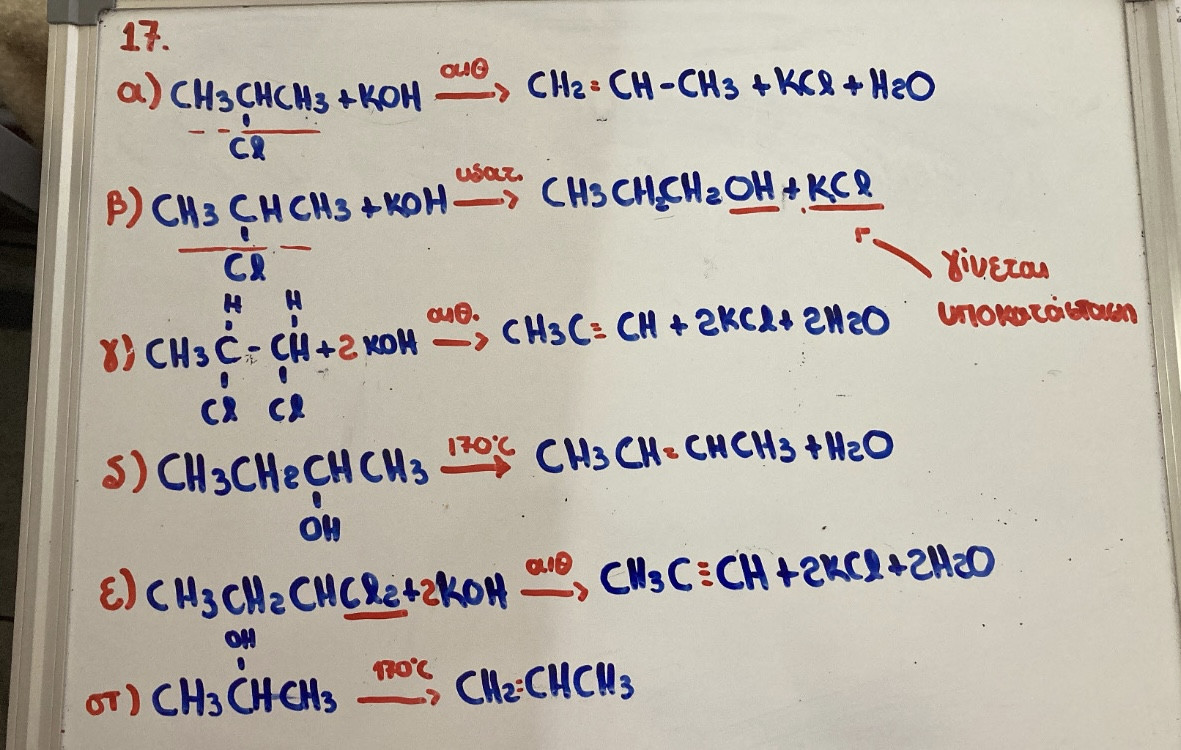 17.
α) CH3CHCH3 + KOH αιθ → CH2=CH-CH3 + KCl + H2O
Cl
β) CH3CHCH3 + KOH υδατ. → CH3CH2CH2OH + KCl
Cl
γίνεται
υποκατάσταση
H H
γ) CH3C-CH + 2KOH αιθ. → CH3C≡CH + 2KCl + 2H2O
Cl Cl
δ) CH3CH2CHCH3 170°C → CH3CH=CHCH3 + H2O
OH
ε) CH3CH2CHCl2 + 2KOH αιθ → CH3C≡CH + 2KCl + 2H2O
OH
στ) CH3CHCH3 170°C → CH2=CHCH3